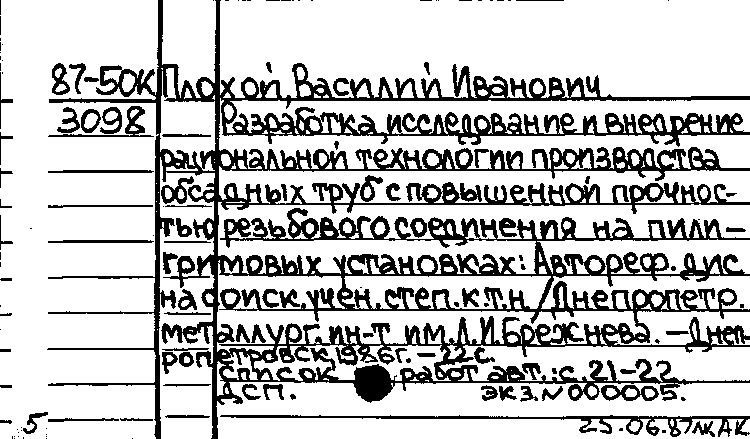 87-50К Плохой, Василий Иванович.
3098 Разработка, исследование и внедрение
рациональной технологии производства
обсадных труб с повышенной прочнос-
тью резьбового соединения на пили-
гримовых установках: Автореф. дис.
на соиск. учен. степ. к.т.н. / Днепропетр.
металлург. ин-т им. Л.И. Брежнева. – Днеп-
ропетровск, 1986г. – 22 с.
Список работ авт.: с. 21-22
ДСП. экз. N 000005.
5 25.06.87